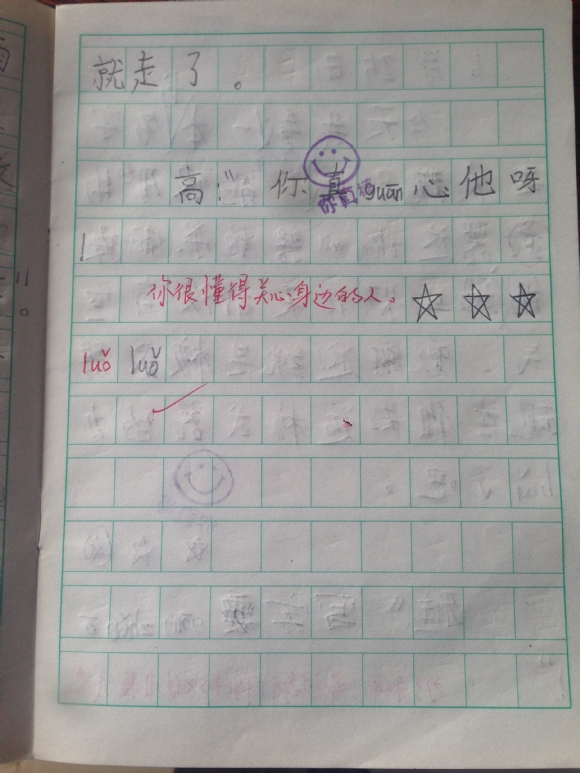 就走了。
高:"你真guān心他呀
!
你很懂得关心身边的人。
luǒ luǒ